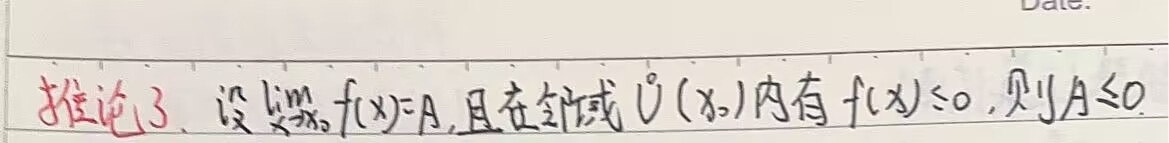 Date.
推论3. 设 lim_{x→x₀} f(x)=A, 且在邻域 Ů(x₀)内有 f(x)≤0, 则A≤0.